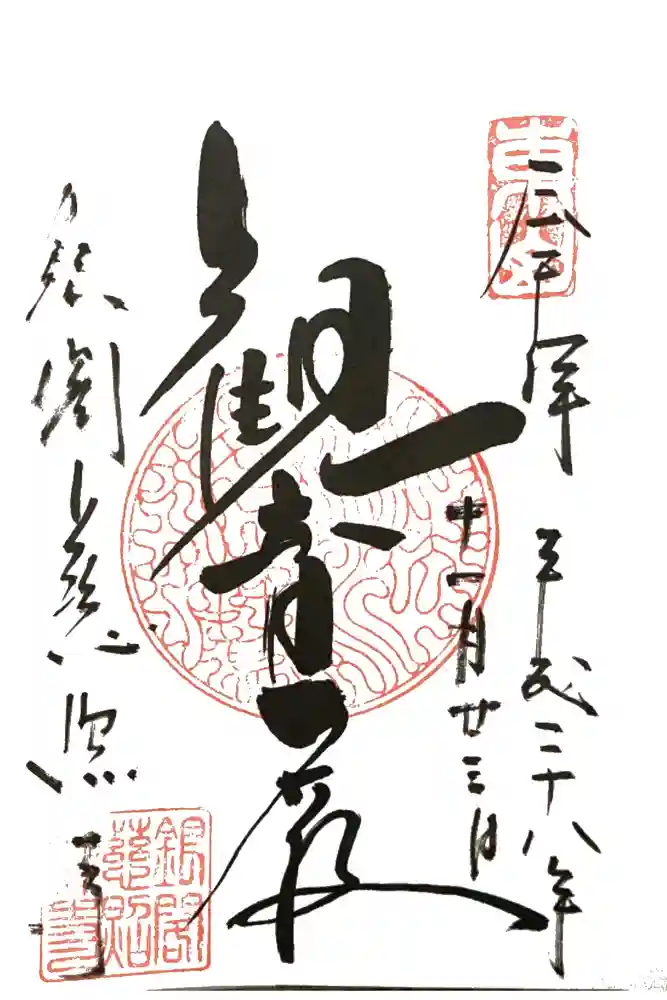 奉拝
平成二十八年
十一月廿三日
觀音殿
銀閣慈照寺
銀閣
慈照
寺